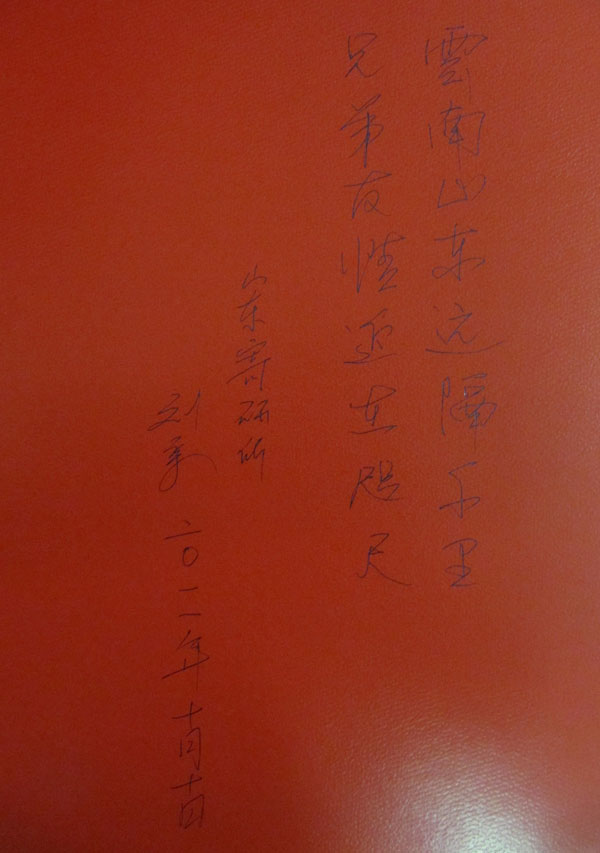 雲南山东远隔千里
兄弟友情近在咫尺
山东寄研所
刘
二〇一一年十月十四日